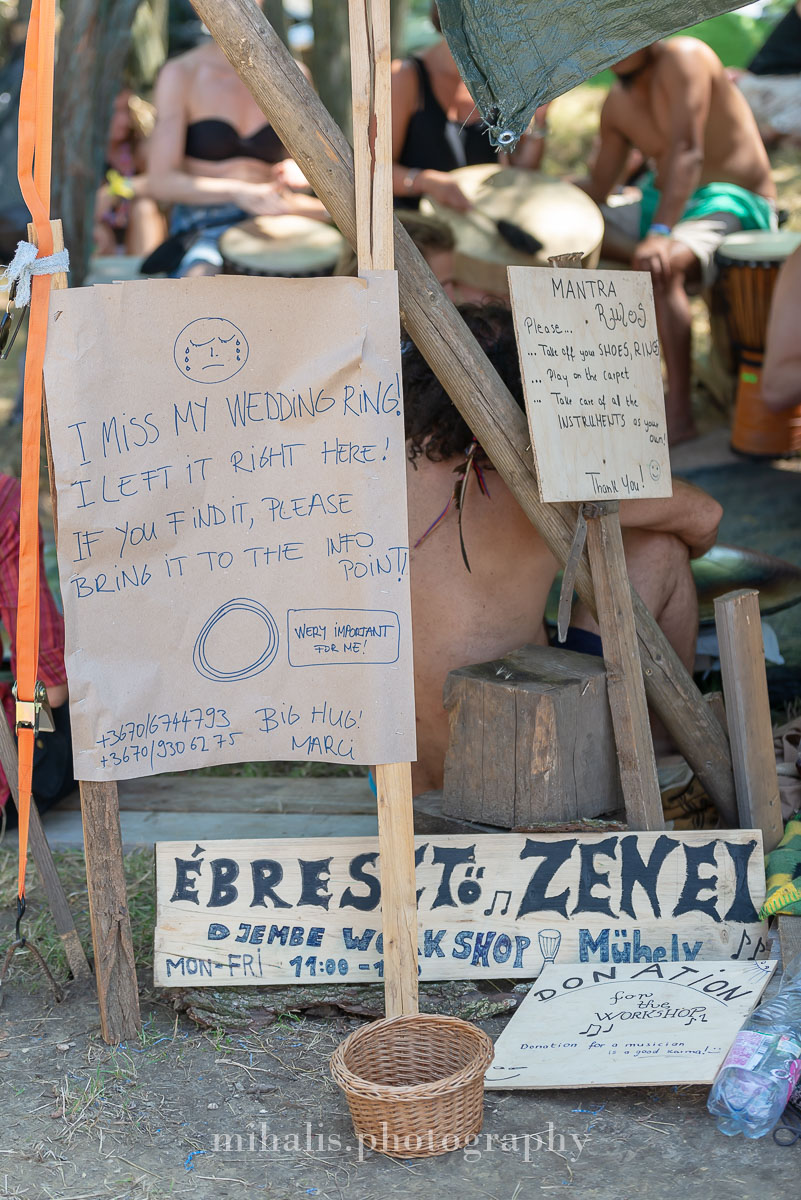 I MISS MY WEDDING RING!
I LEFT IT RIGHT HERE!
IF YOU FIND IT, PLEASE
BRING IT TO THE INFO
POINT!
WERY IMPORTANT
FOR ME!
+3670/6744793
+3670/930 62 75
BIG HUG!
MARCI
MANTRA
Rules
Please...
... Take off you SHOES, RING
... Play on the carpet
... Take care of all the
INSTRUMENTS as your
own!
Thank You!
ÉBRESZTŐ ZENEI
DJEMBE WORKSHOP Műhely
MON-FRI 11:00-1
DONATION
for the
WORKSHOP
Donation for a musician
is a good karma!
mihalis.photography